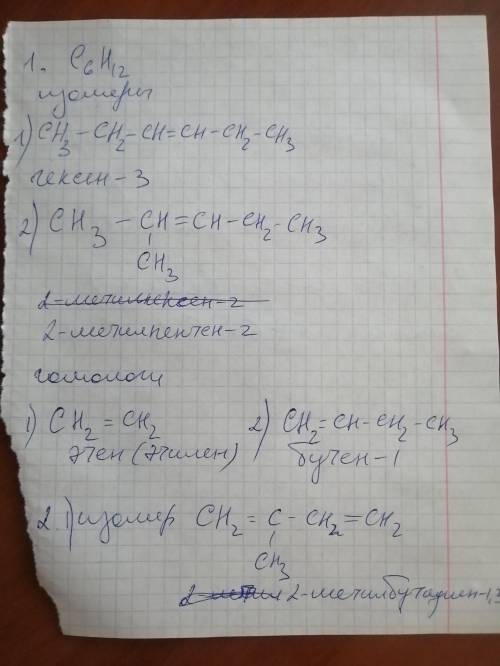 1. C6H12
изомеры
1) CH3 – CH2 – CH=CH–CH2–CH3
гексен-3
2) CH3 – CH=CH–CH2–CH3
CH3
2-метилгексен-2
2-метилпентен-2
гомологи
1) CH2 = CH2 2) CH2=CH–CH2–CH3
этен (этилен) бутен-1
2. 1) изомер CH2 = C – CH2=CH2
CH3
2-метил 2-метилбутадиен-1,3